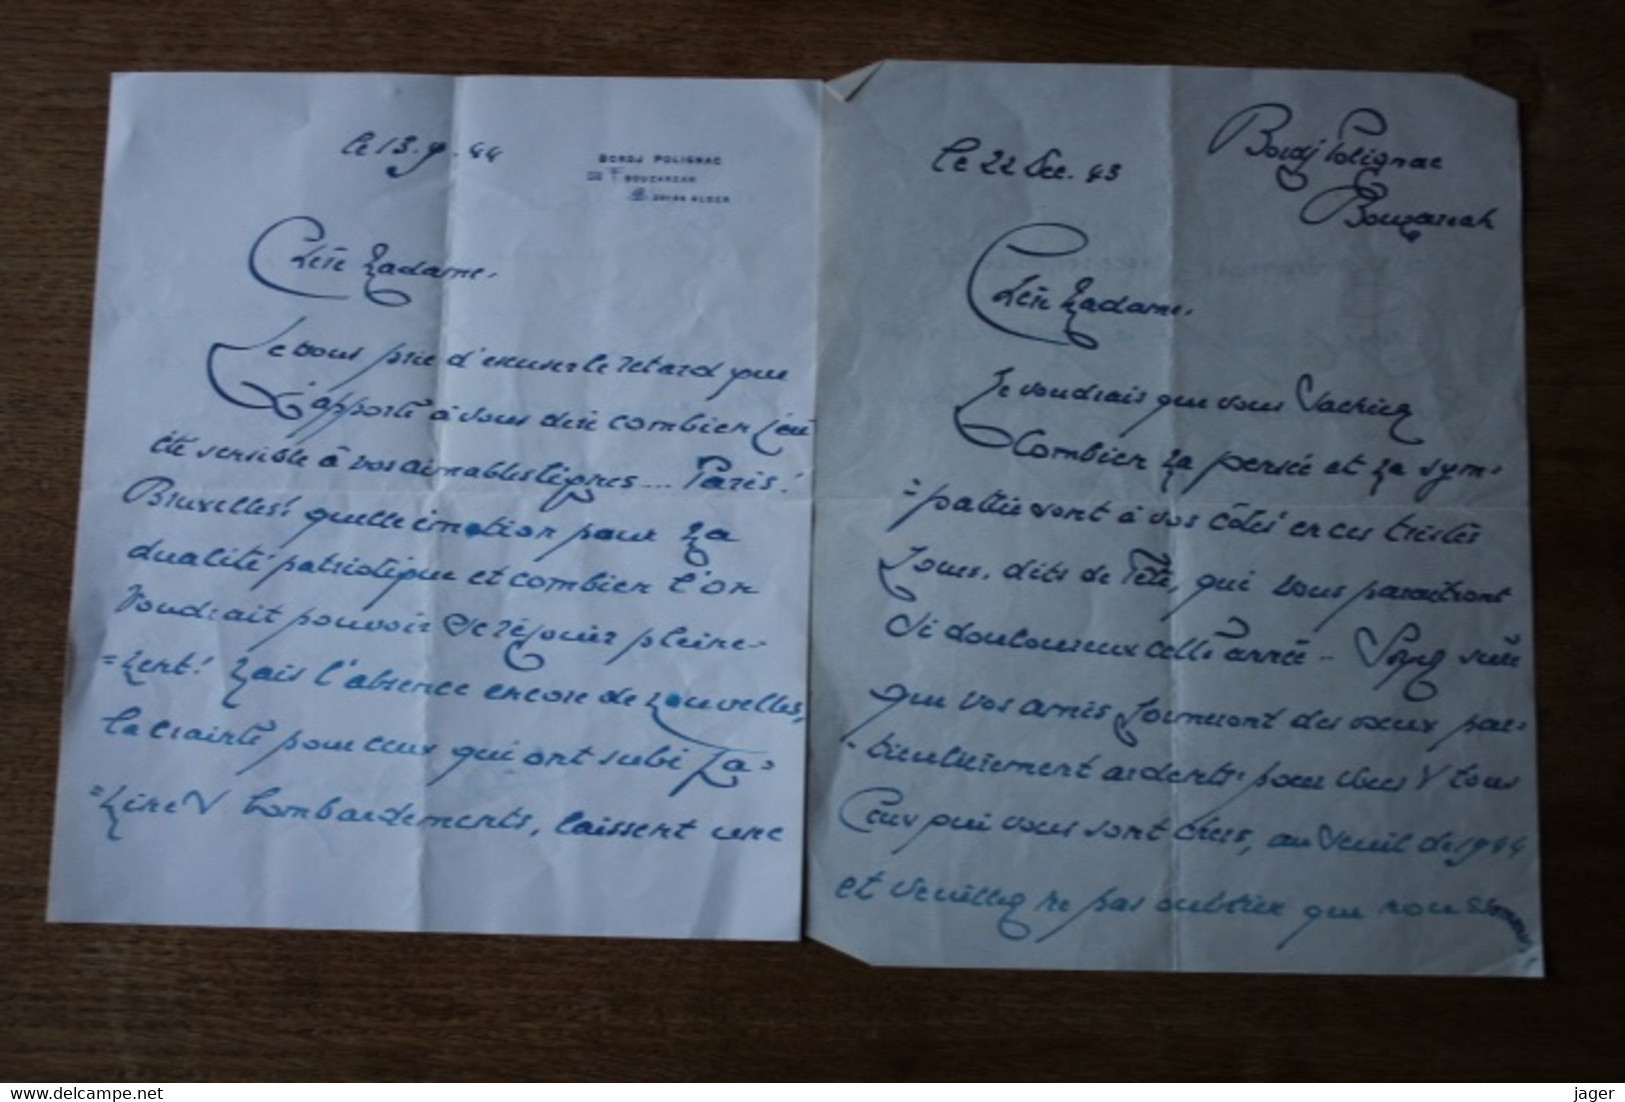 le 13.9.44
BORDJ POLIGNAC
BOUZAREAH
ALGER
Chère Madame.
Je vous prie d'excuser le retard que
j'apporte à vous dire combien j'ai
été sensible à vos aimables lignes... Paris!
Bruxelles! quelle émotion pour ma
dualité patriotique et combien l'on
voudrait pouvoir se réjouir pleine-
=ment! Mais l'absence encore de nouvelles,
la crainte pour ceux qui ont subi
bombardements, laissent une
le 22 Dec. 43
Bordj Polignac
Bouzareah
Chère Madame.
Je voudrais que vous sachiez
Combien ma pensée et ma sym-
=pathie vont à vos côtés en ces tristes
Jours, dits de Fête, qui vous paraîtront
si douloureux cette année.. Soyez sûre
que vos amis forment des vœux par-
-ticulièrement ardents pour vous & tous
Ceux qui vous sont chers, au seuil de 1944
et veuillez ne pas oublier que nous sommes
jager